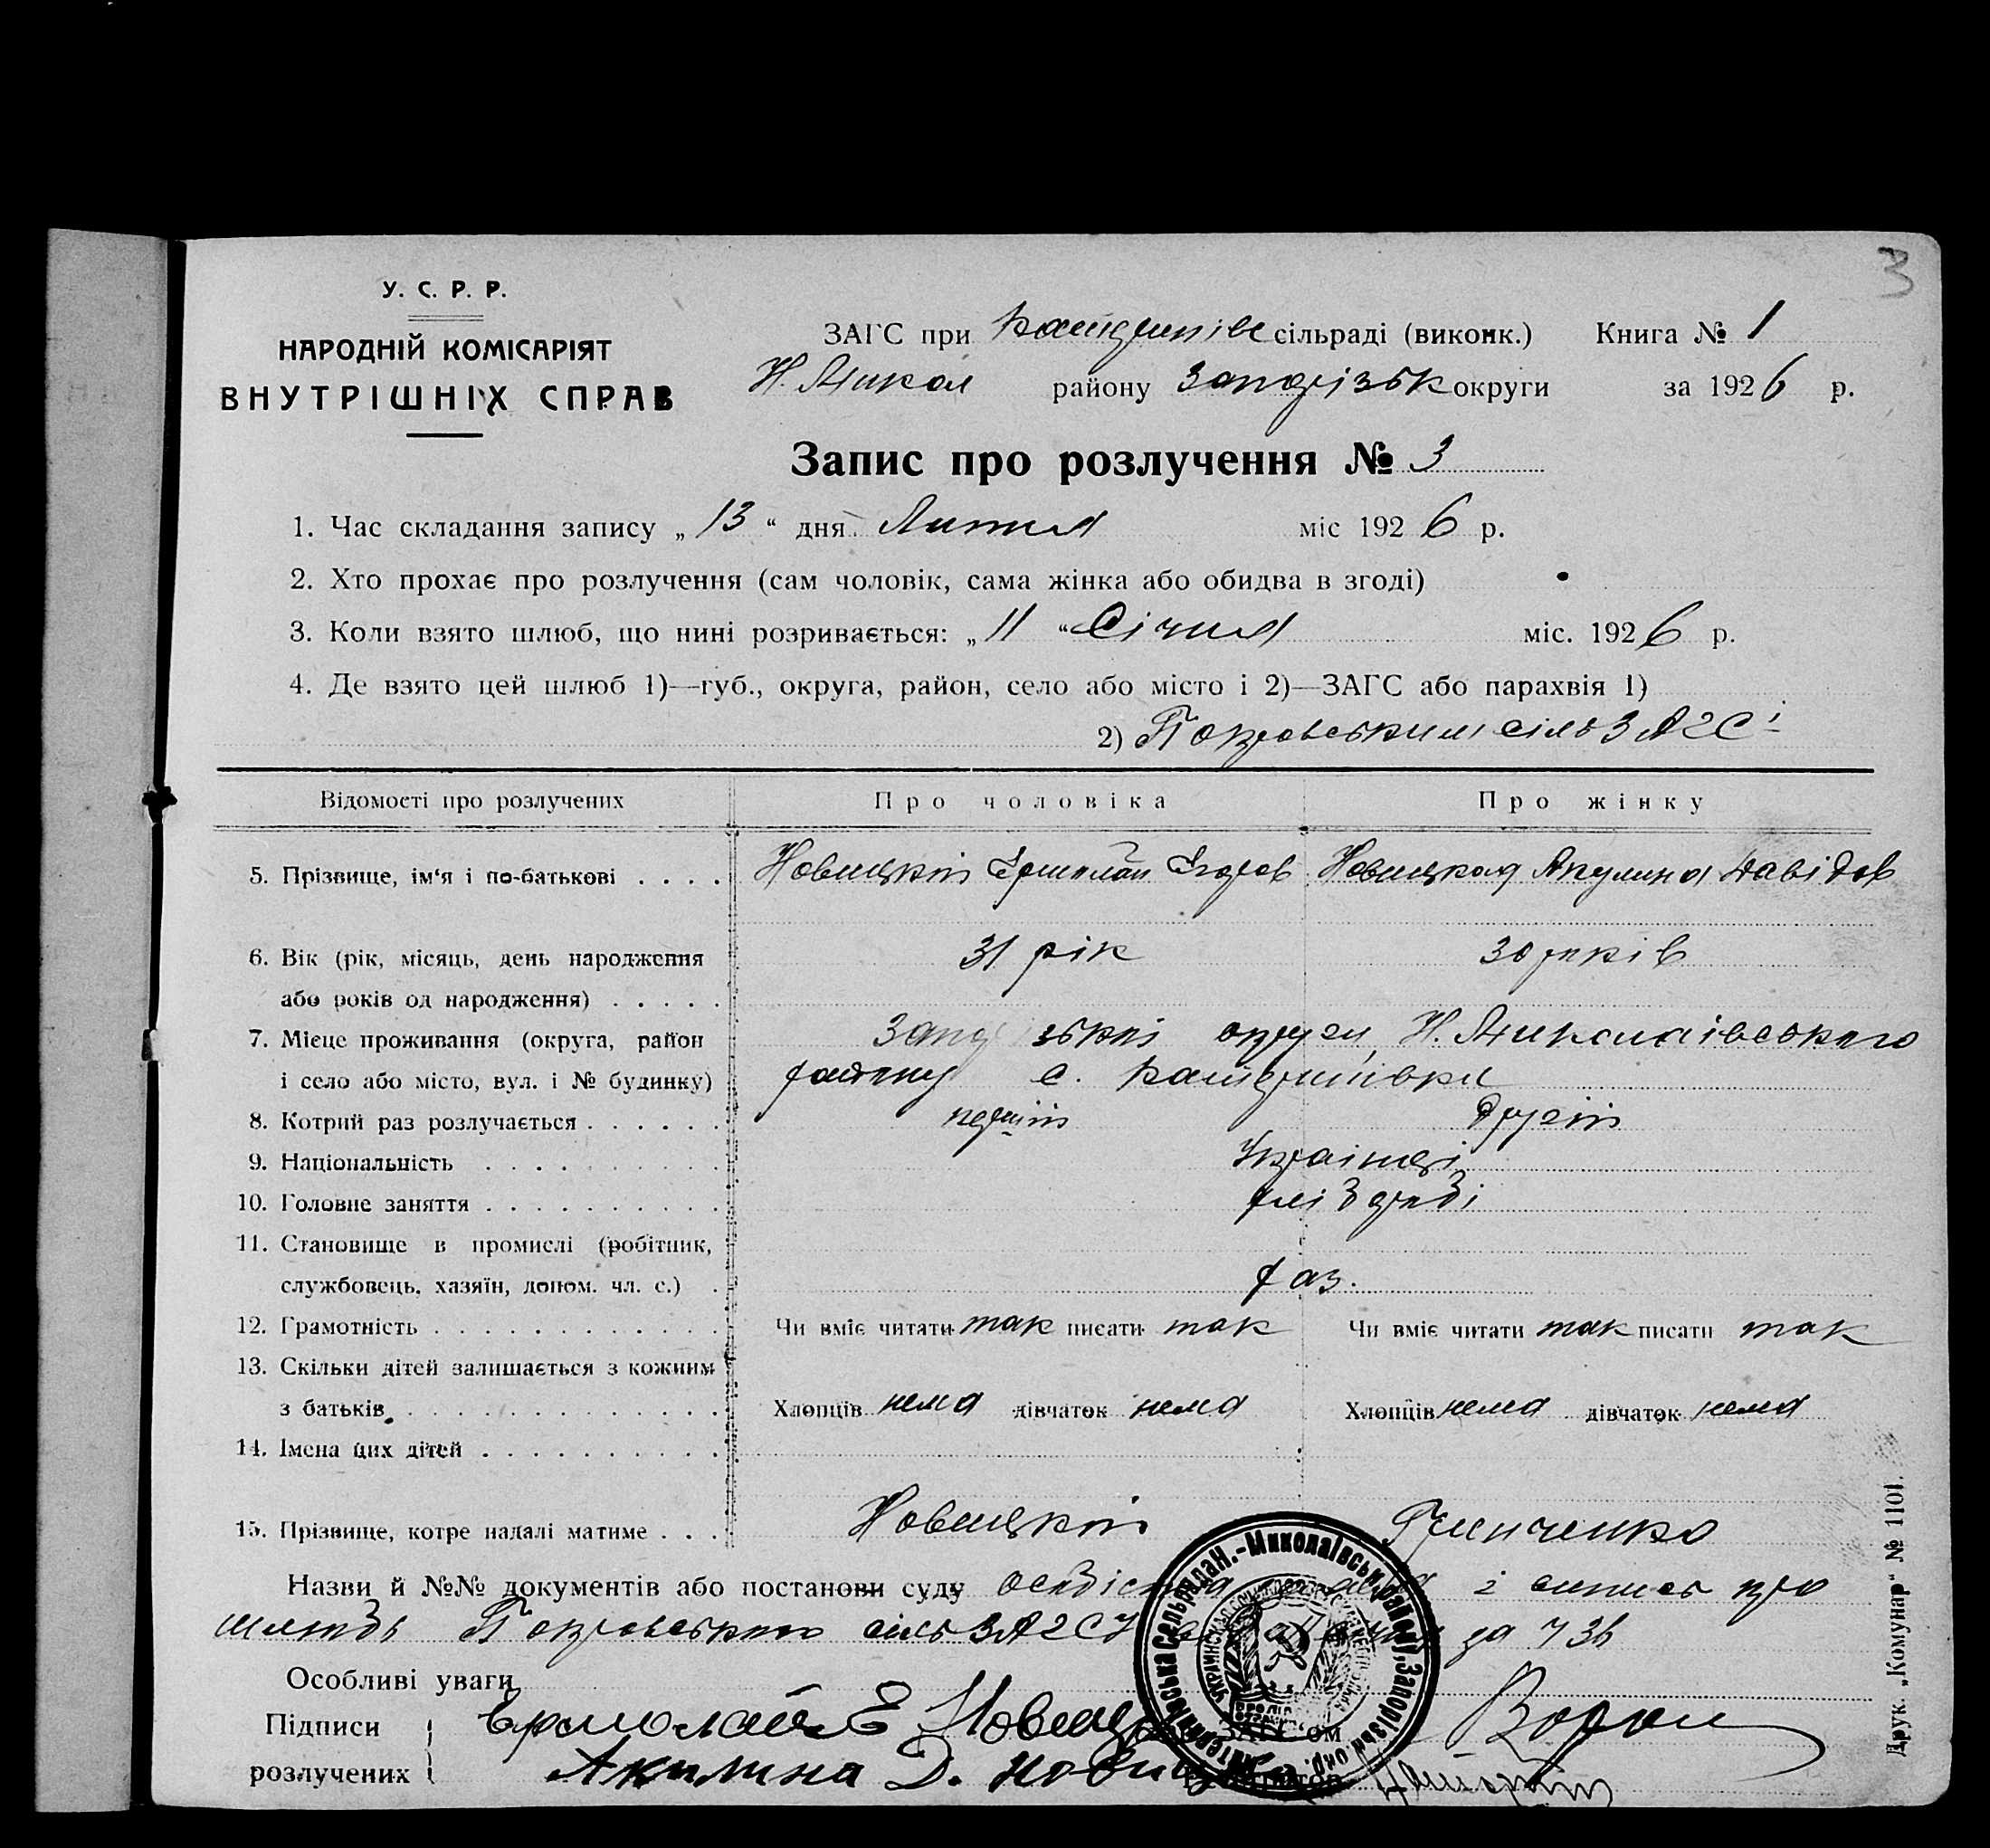 3
У. С. Р. Р.
НАРОДНІЙ КОМІСАРІЯТ
ВНУТРІШНІХ СПРАВ
ЗАГС при сільраді (виконк.) Книга № 1
Н. Микол району Запорізьк округи за 1926 р.
Запис про розлучення № 3
1. Час складання запису „13“ дня міс 1926 р.
2. Хто прохає про розлучення (сам чоловік, сама жінка або обидва в згоді)
3. Коли взято шлюб, що нині розривається: „11“ Січня міс. 1926 р.
4. Де взято цей шлюб 1)—губ., округа, район, село або місто і 2)—ЗАГС або парахвія 1)
2) Покровським сільЗАГСі
Відомості про розлучених Про чоловіка Про жінку
5. Прізвище, ім‘я і по-батькові . . . . Новицкій Єрмолай Новицкая Акулина Давідов
6. Вік (рік, місяць, день народження 31 рік 30 років
або років од народження) . . . . .
7. Місце проживання (округа, район округи, Н. Миколаівського
і село або місто, вул. і № будинку) району с.
8. Котрий раз розлучається . . . . . . первій другій
9. Національність . . . . . . . . . . Украінці
10. Головне заняття . . . . . . . . . . хліборобі
11. Становище в промислі (робітник,
службовець, хазяїн, допом. чл. с.) . хаз.
12. Грамотність . . . . . . . . . . . . Чи вміє читати так писати так Чи вміє читати так писати так
13. Скільки дітей залишається з кожним
з батьків . . . . . . . . . . . . . Хлопців нема дівчаток нема Хлопців нема дівчаток нема
14. Імена цих дітей . . . . . . . . . .
15. Прізвище, котре надалі матиме . . . Новицкій Гринченко
Назви й №№ документів або постанови суду і випись про
шлюбь Покровського сільЗАГСУ за
Особливі уваги
Підписи Ермолай Е
розлучених Акилина Д.
Н.-Миколаївськ. району, Запорізьк. окр.
Друк. „Комунар“ № 1101.